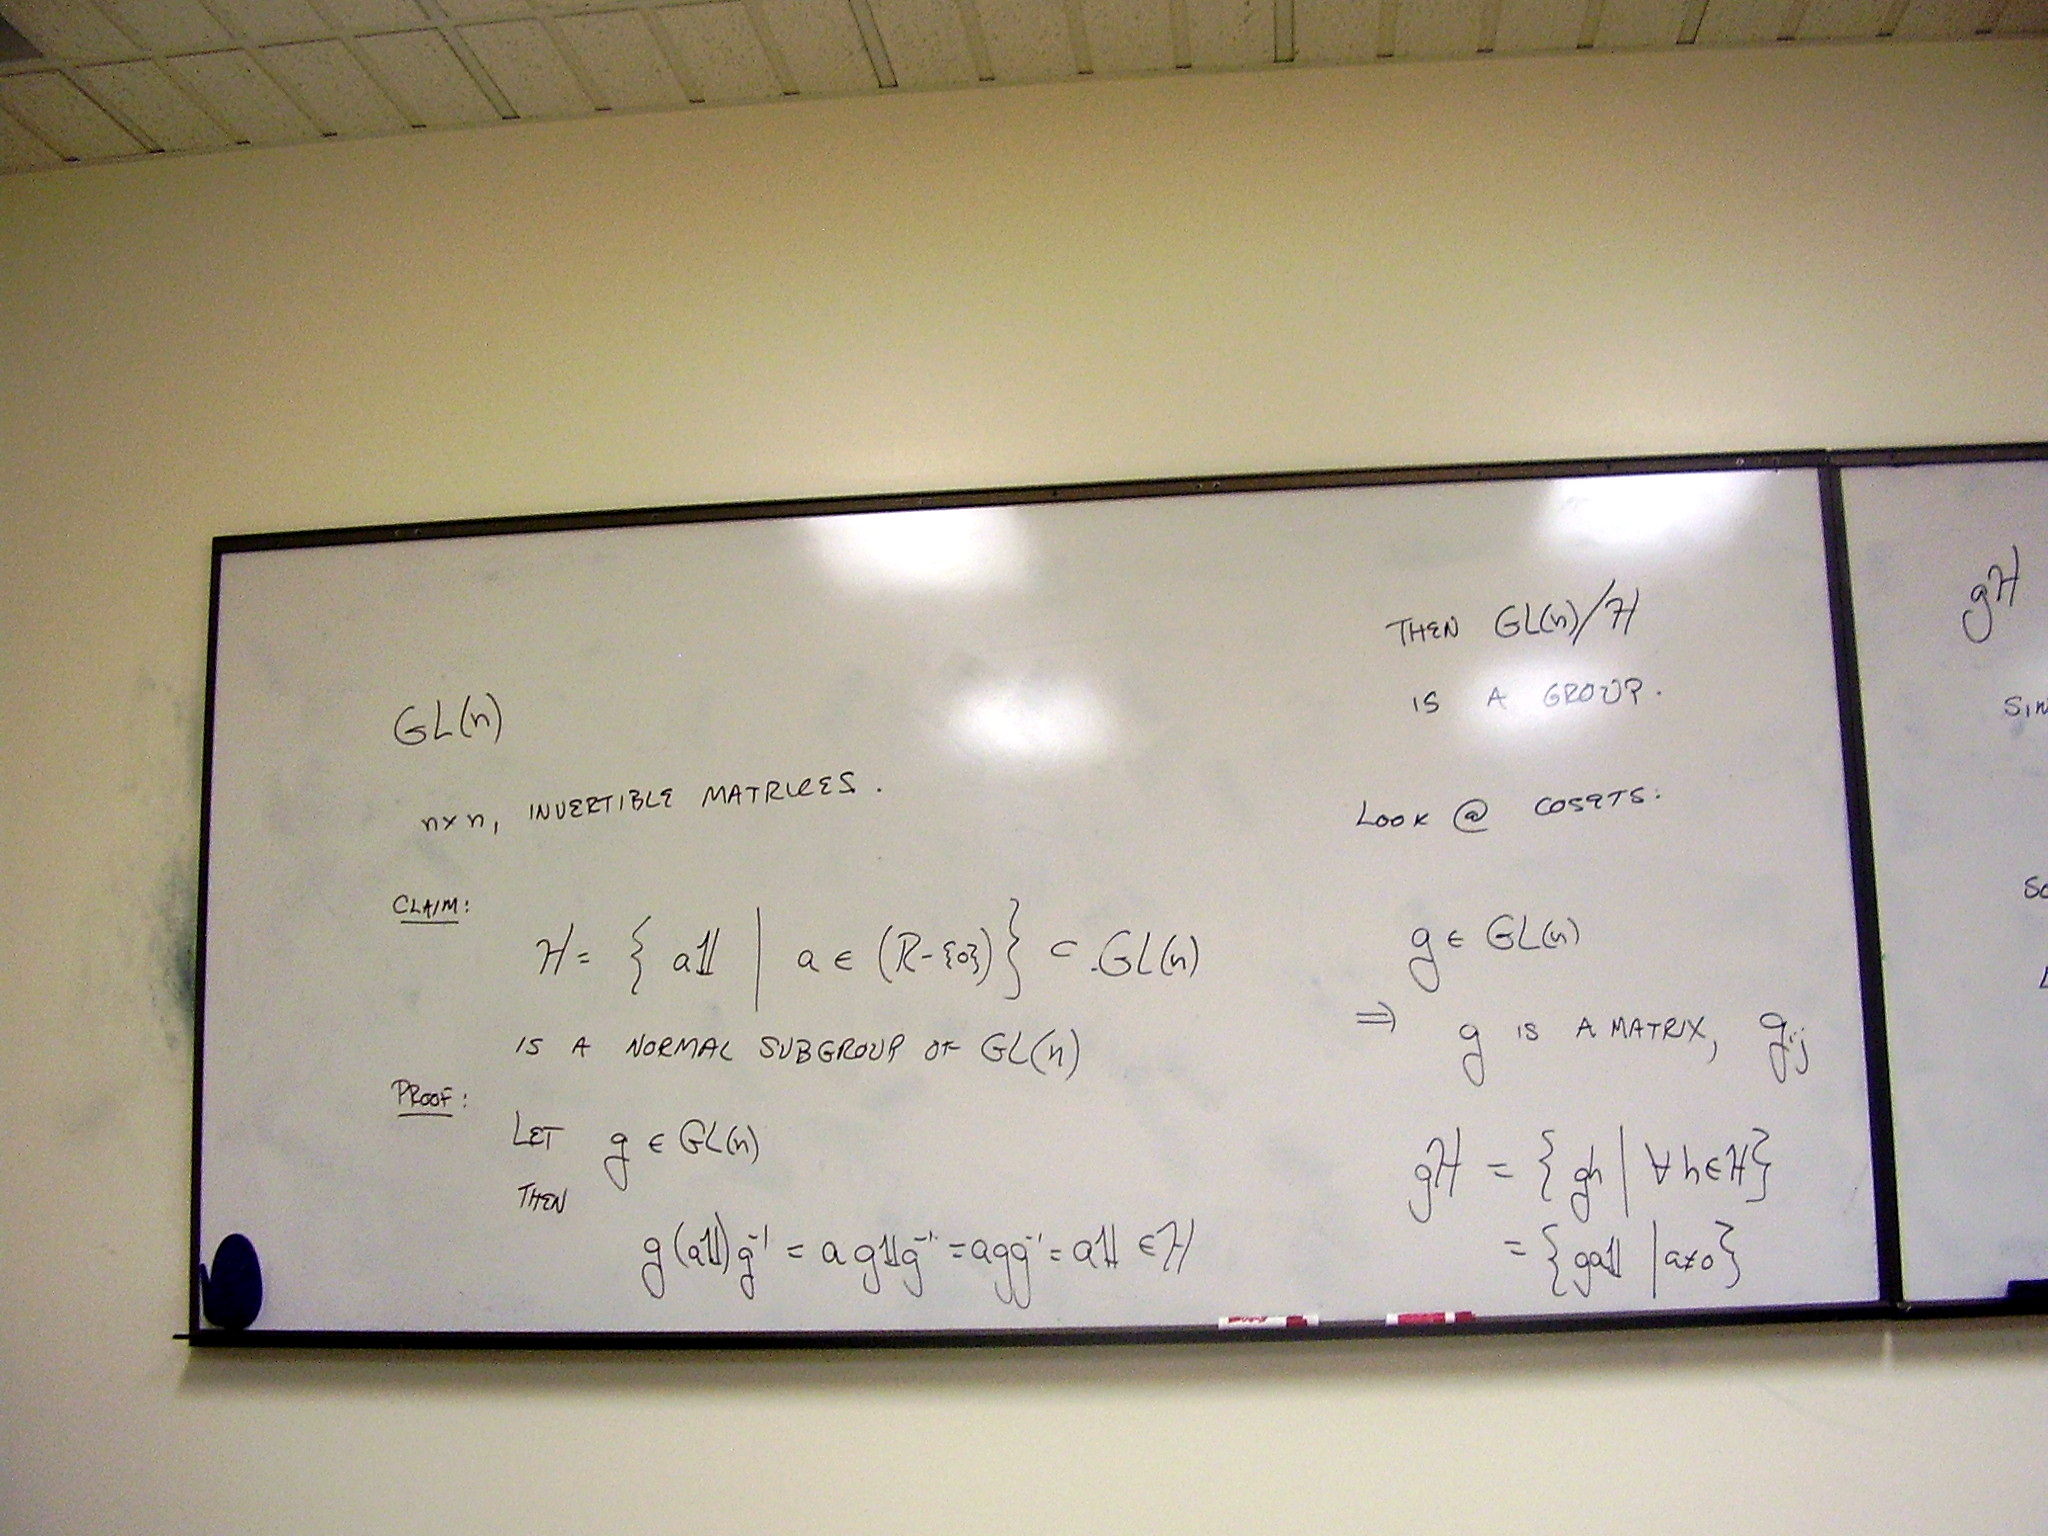 GL(n)
n×n, INVERTIBLE MATRICES.
CLAIM:
H = { a𝟙 | a ∈ (R-{0})} ⊂ GL(n)
IS A NORMAL SUBGROUP OF GL(n)
PROOF:
LET g ∈ GL(n)
THEN
g(a𝟙)g⁻¹ = a g𝟙g⁻¹ = agg⁻¹ = a𝟙 ∈ H
THEN GL(n)/H
IS A GROUP.
LOOK @ COSETS:
g ∈ GL(n)
⇒ g IS A MATRIX, gij
gH = {gh | ∀ h∈H}
= {ga𝟙 | a≠0}
gH